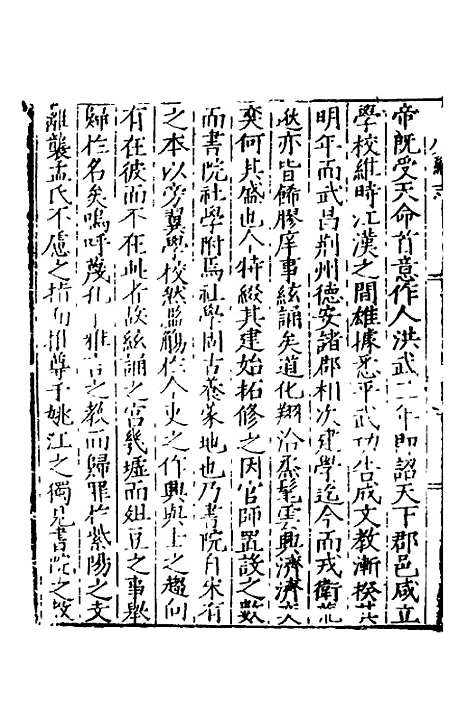 帝既受天命首意作人洪武二年即詔天下郡邑咸立
學校維時江漢之間雄據悉平武功告成文教漸揆其
明年而武昌荆州德安諸郡相次建學迄今而戎衛荒
亦皆俻膠庠事絃誦矣道化翔洽烝髦雲興濟濟奕
奕何其盛也今特綴其建始拓修之因官師置設之數
而書院社學附焉社學固古養蒙地也乃書院自宋有
之本以旁翼學校然監觴作人吏之作興與士之趨向
有在彼而不在此者故絃誦之宫幾墟而俎豆之事舉
歸於名矣嗚呼蔑孔子雅言之教而歸罪於紫陽之支
離襲孟氏不慮之指而推尊于姚江之獨見書院之故